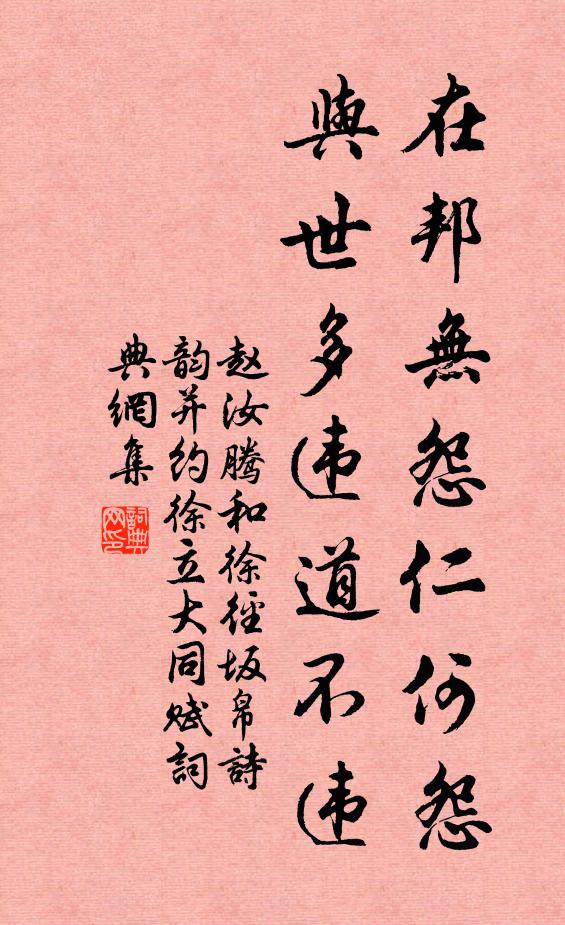 在邦無怨仁何怨
與世多违道不违
赵汝腾和徐徑坂帛詩
韵并约徐立大同赋詞
典網集
詞典
网印